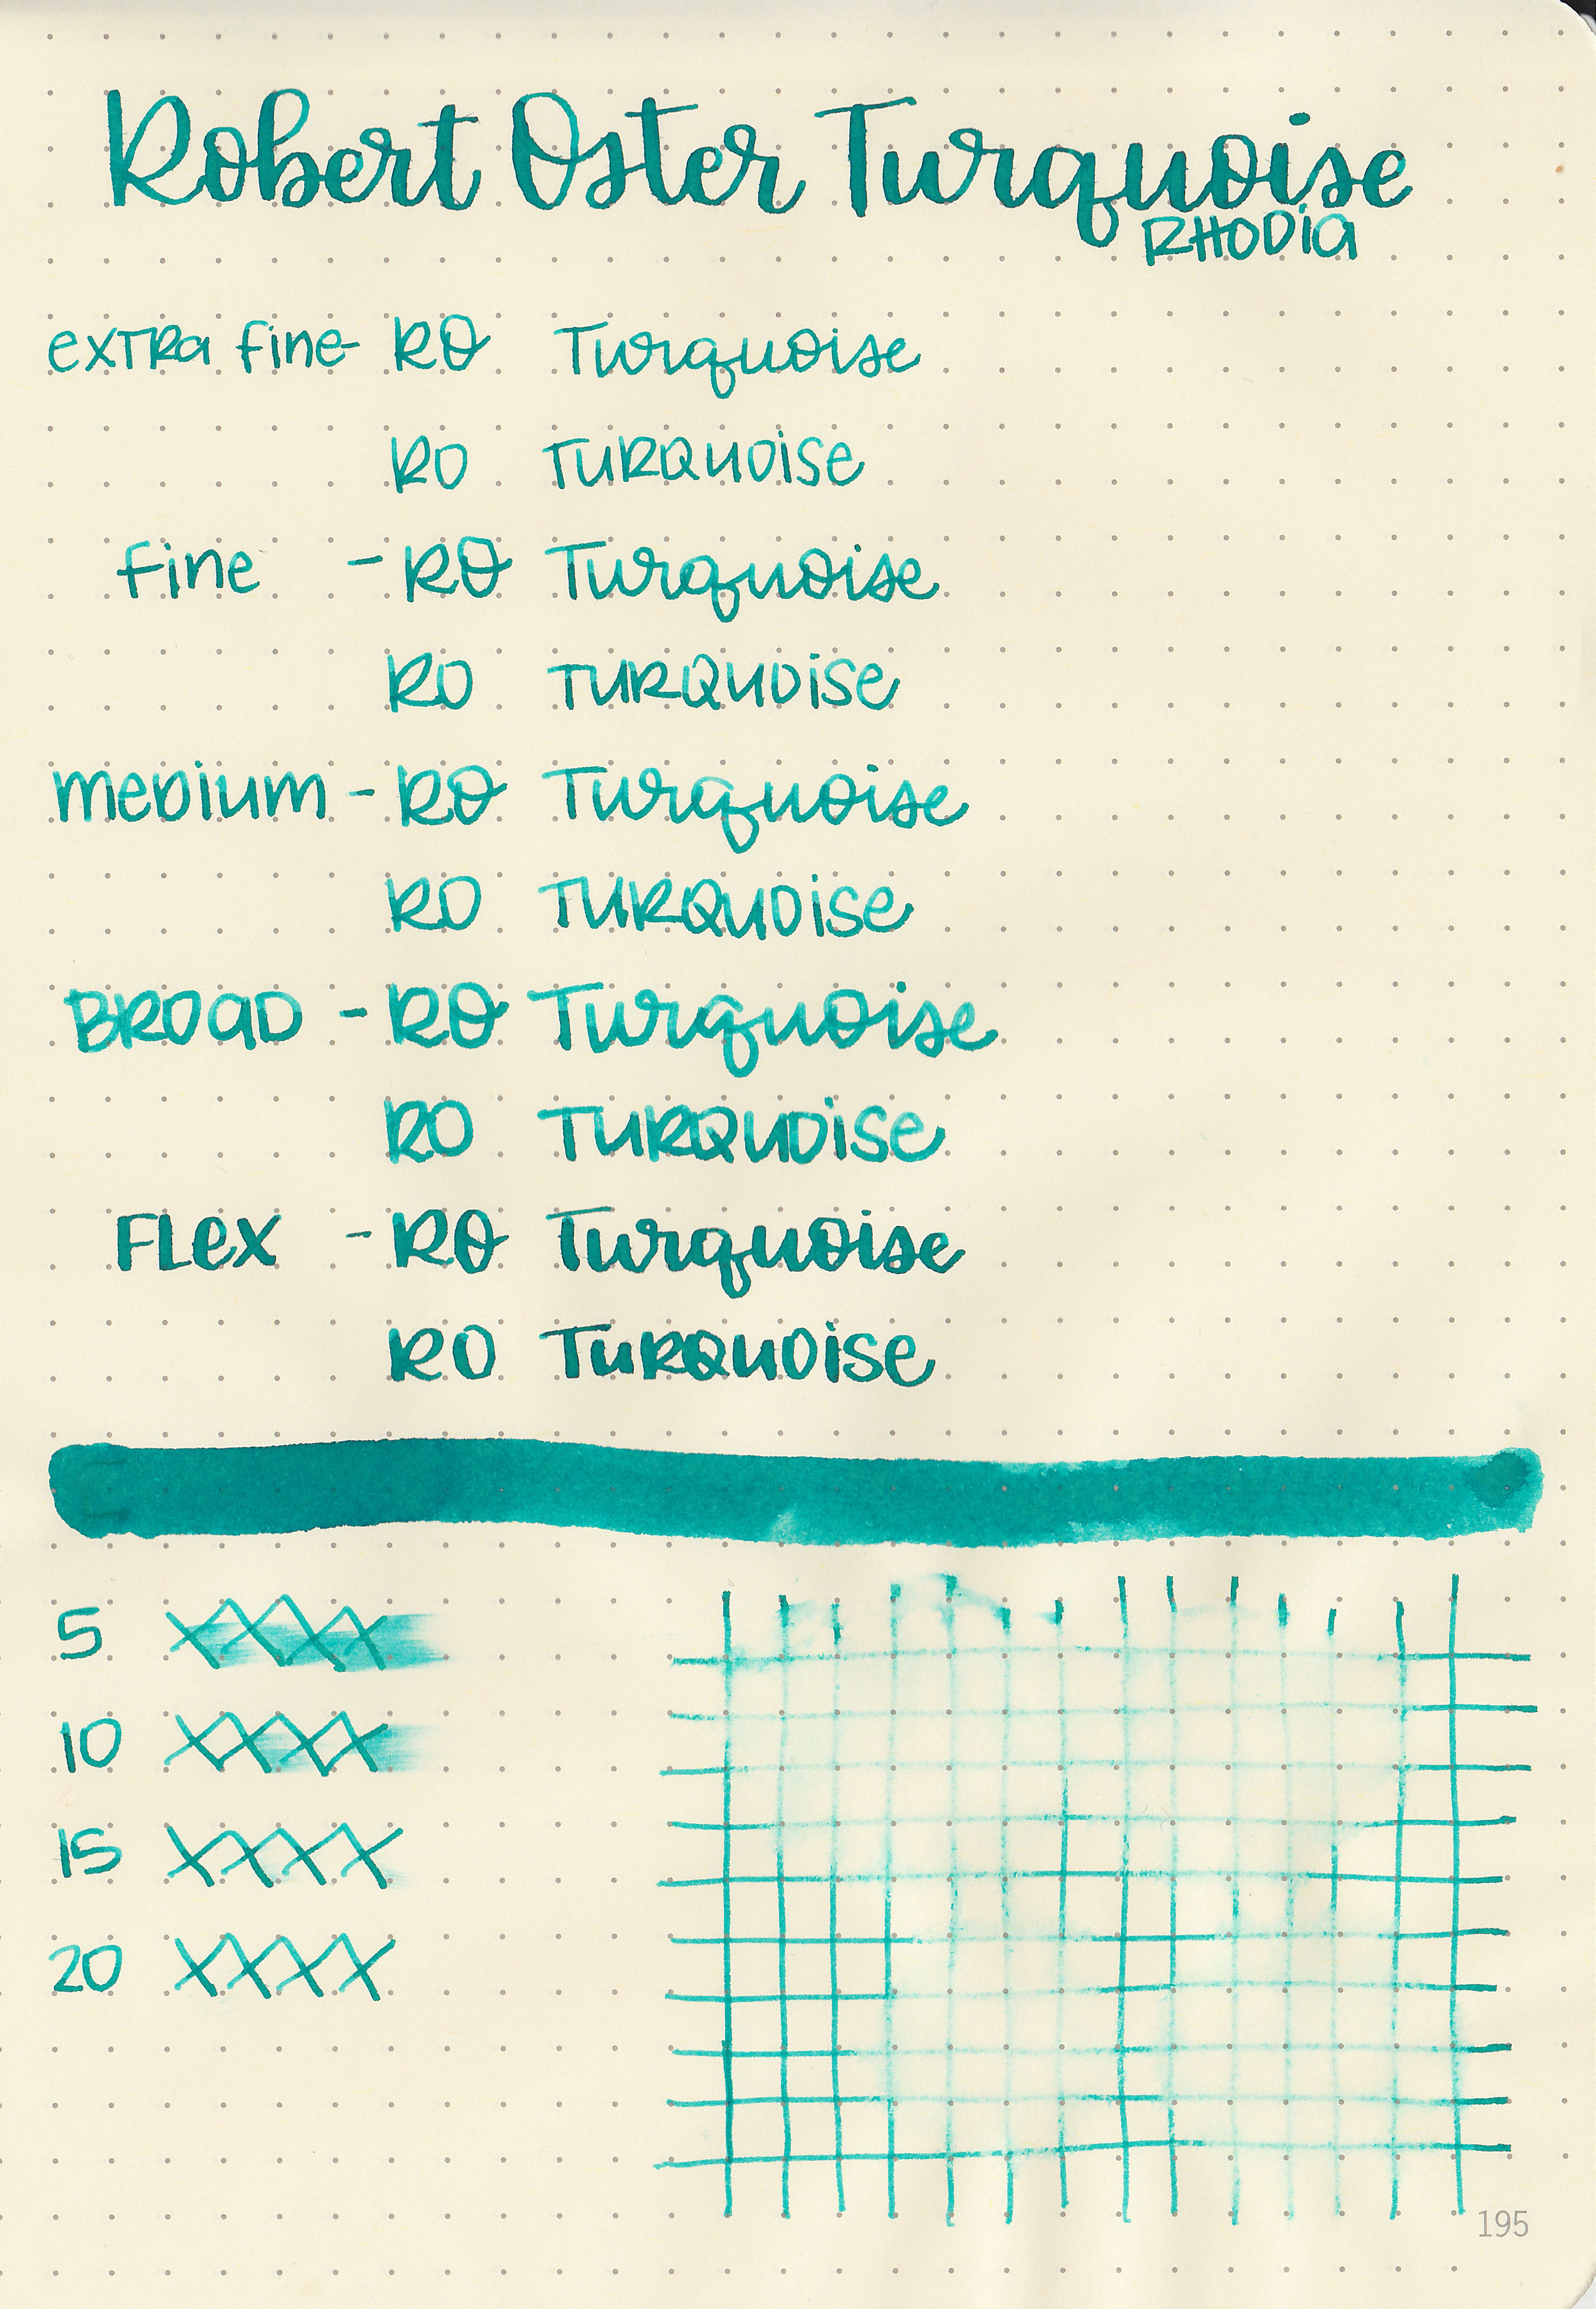 Robert Oster Turquoise
RHODIA
extra fine- RO Turquoise
RO TURQUOise
fine - RO Turquoise
RO TURQUOise
meDium - RO Turquoise
RO TURQUOise
BROaD - RO Turquoise
RO TURQUOise
FLex - RO Turquoise
RO TURQUOise
5 XXXX
10 XXXX
15 XXXX
20 XXXX
195